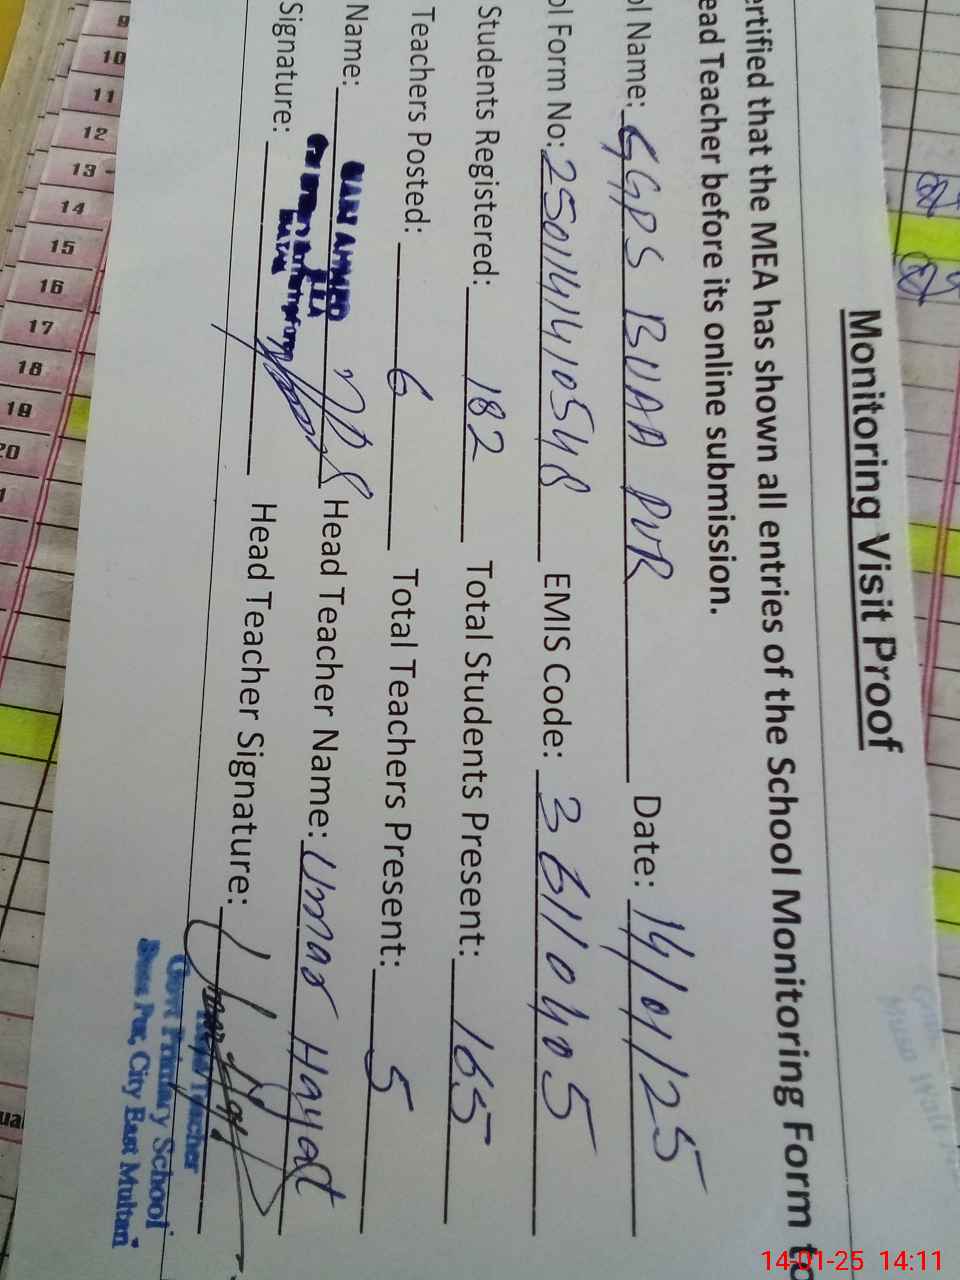 Monitoring Visit Proof
ertified that the MEA has shown all entries of the School Monitoring Form to
ead Teacher before its online submission.
ol Name: GGPS BUAA PUR Date: 14/01/25
ol Form No: 25011414110548 EMIS Code: 36110405
Students Registered: 182 Total Students Present: 165
Teachers Posted: 6 Total Teachers Present: 5
Name: AHMED Head Teacher Name: Umar Hayat
Signature: Head Teacher Signature:
Head Teacher
Govt Primary School
Pur, City East Multan
9
10
11
12
13
14
15
16
17
18
19
20
14-01-25 14:11